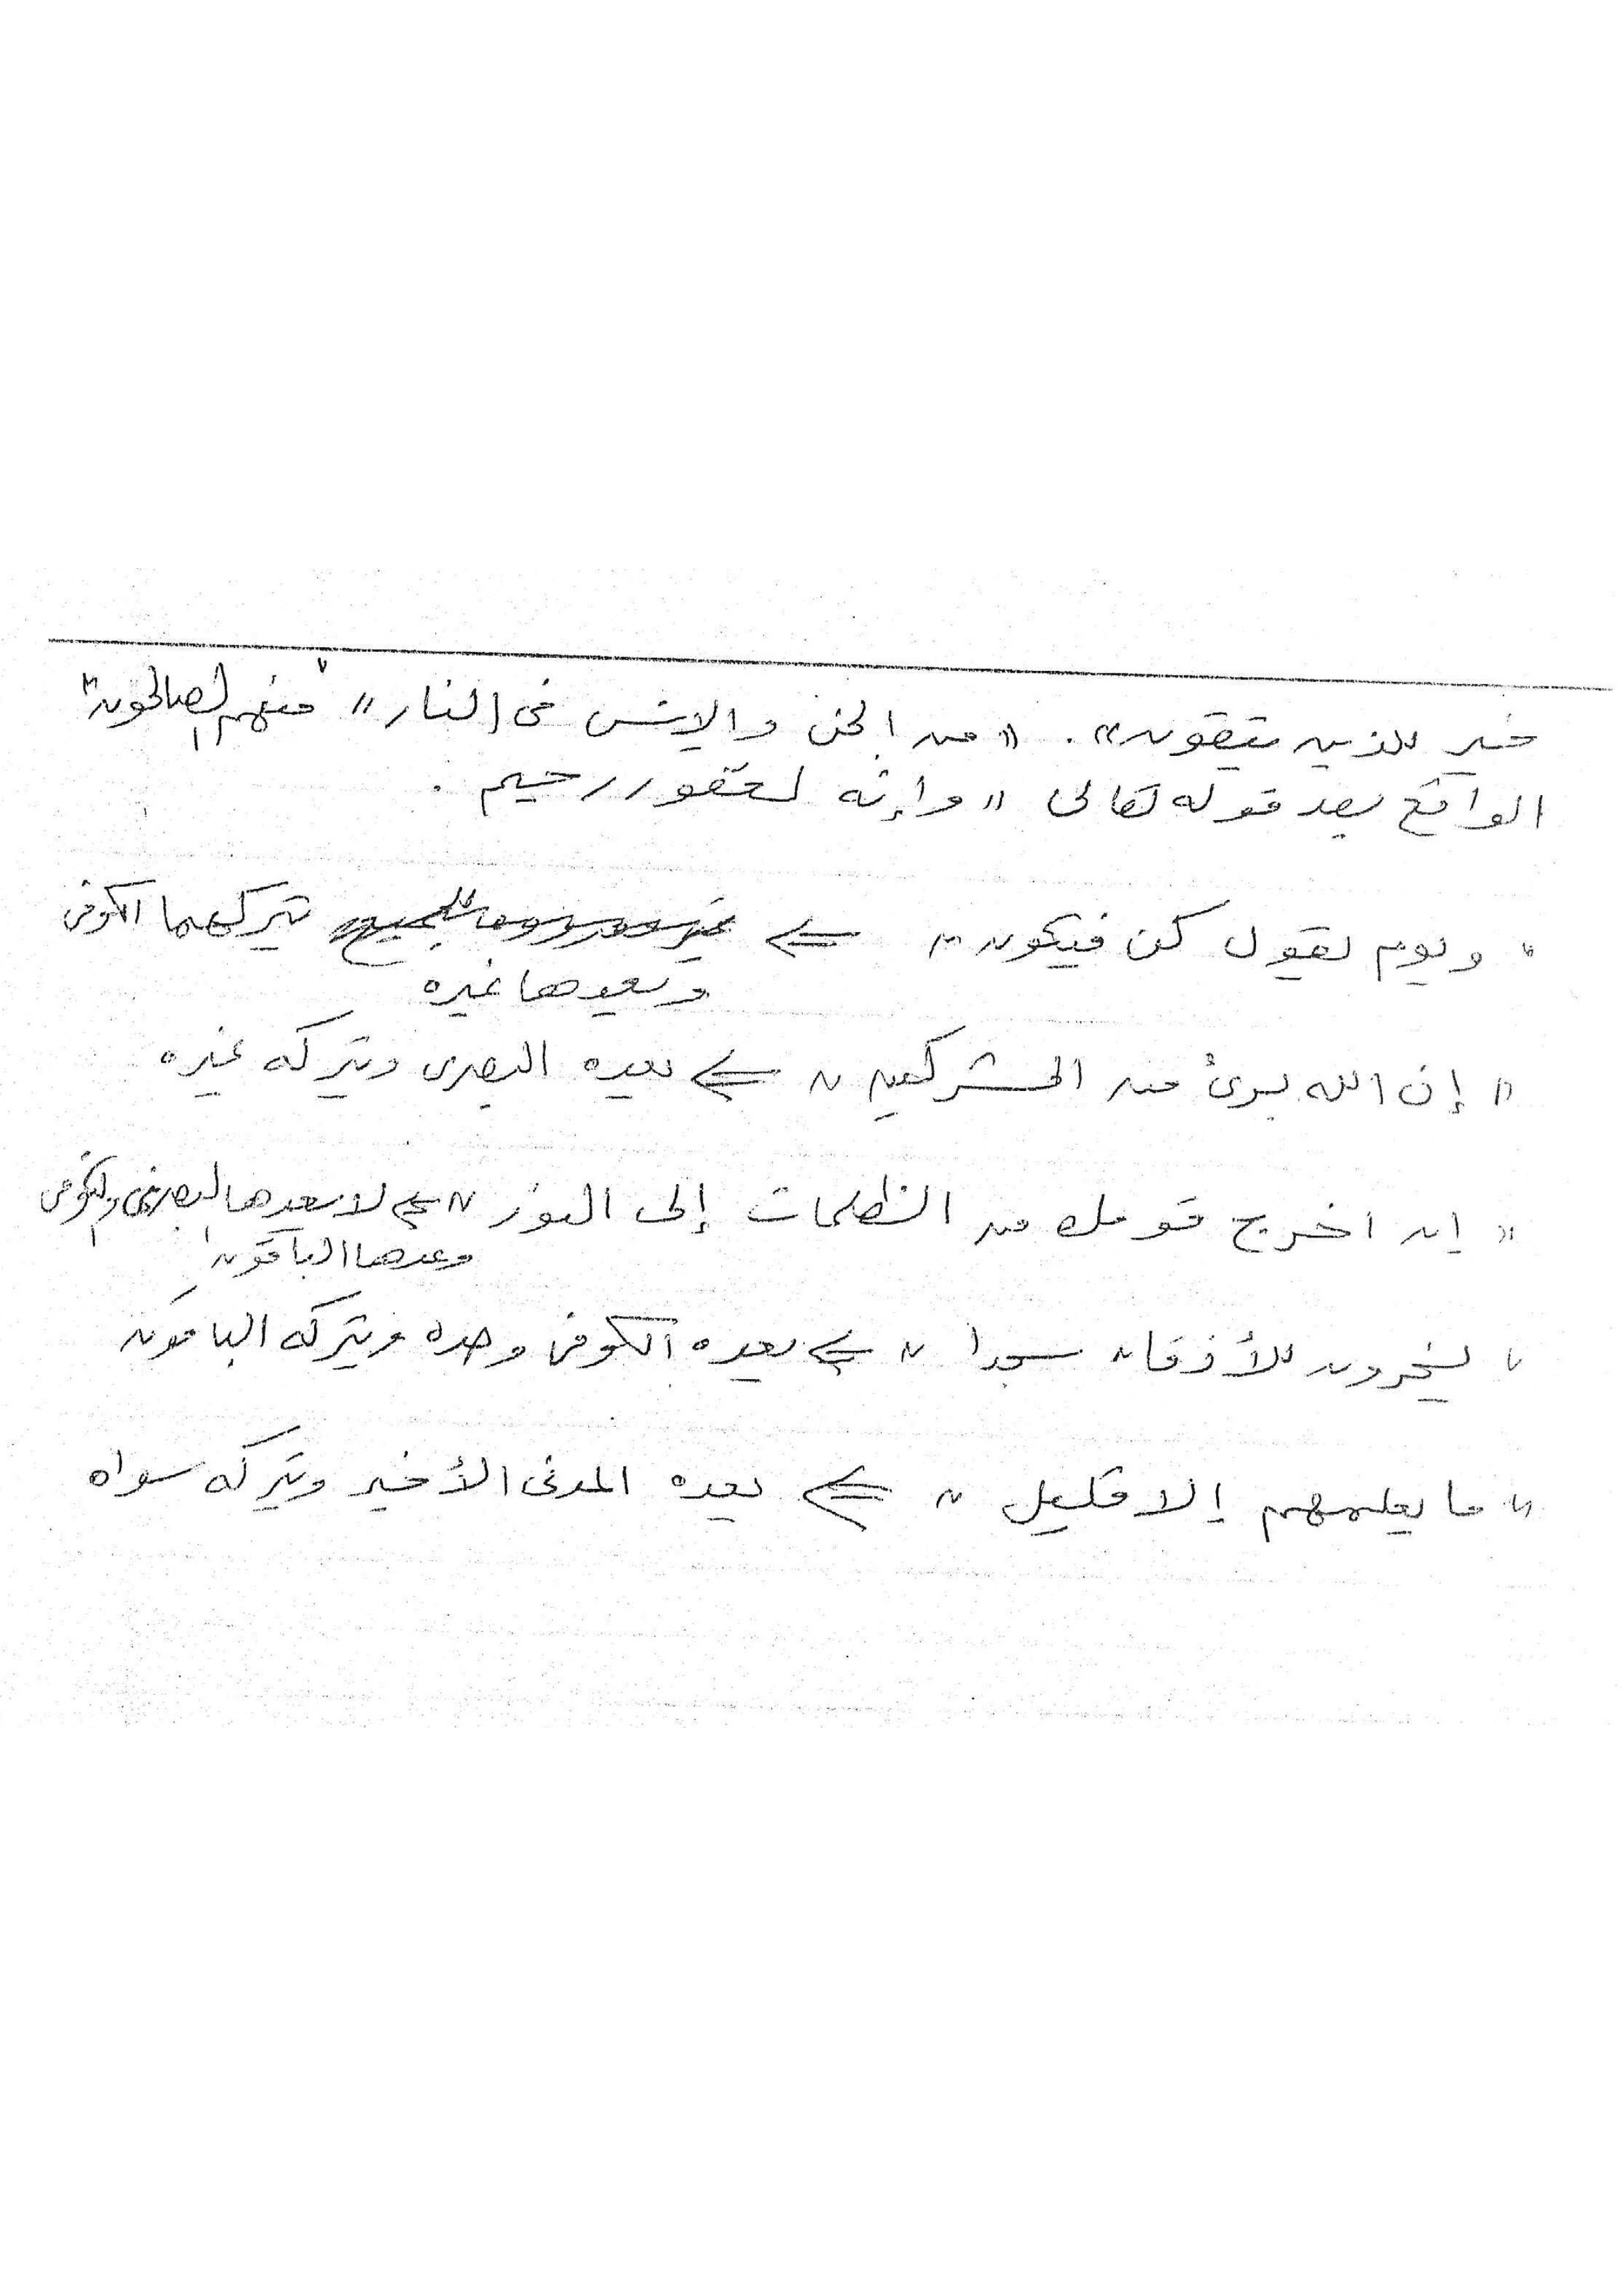 خير للذين يتقون». «من الجن والإنس فى النار» "منهم الصالحون"
الواقع بعد قوله تعالى «وإنه لغفور رحيم .
" ويوم يقول كن فيكون " ⇐ يتركها الكوفى
ويعدها غيره
« إن الله برئ من المشركين " ⇐ يعده البصرى ويتركه غيره
« ان اخرج قومك من الظلمات إلى النور " ⇐ لا يعدها البصرى والكوفى
وعدها الباقون
" يخرون للأذقان سجدا " ⇐ يعده الكوفى وحده ويتركه الباقون
" ما يعلمهم إلا قليل " ⇐ يعده المدنى الأخير ويتركه سواه